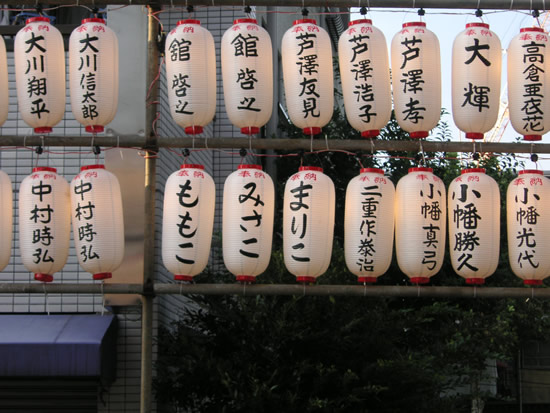 奉納 大川翔平
奉納 大川信太郎
奉納 舘啓之
奉納 舘啓之
奉納 芦澤友見
奉納 芦澤浩子
奉納 芦澤孝
奉納 大輝
奉納 高倉亜衣花
奉納 中村時弘
奉納 中村時弘
奉納 ももこ
奉納 みさこ
奉納 まりこ
奉納 二重作泰治
奉納 小幡真弓
奉納 小幡勝久
奉納 小幡光代